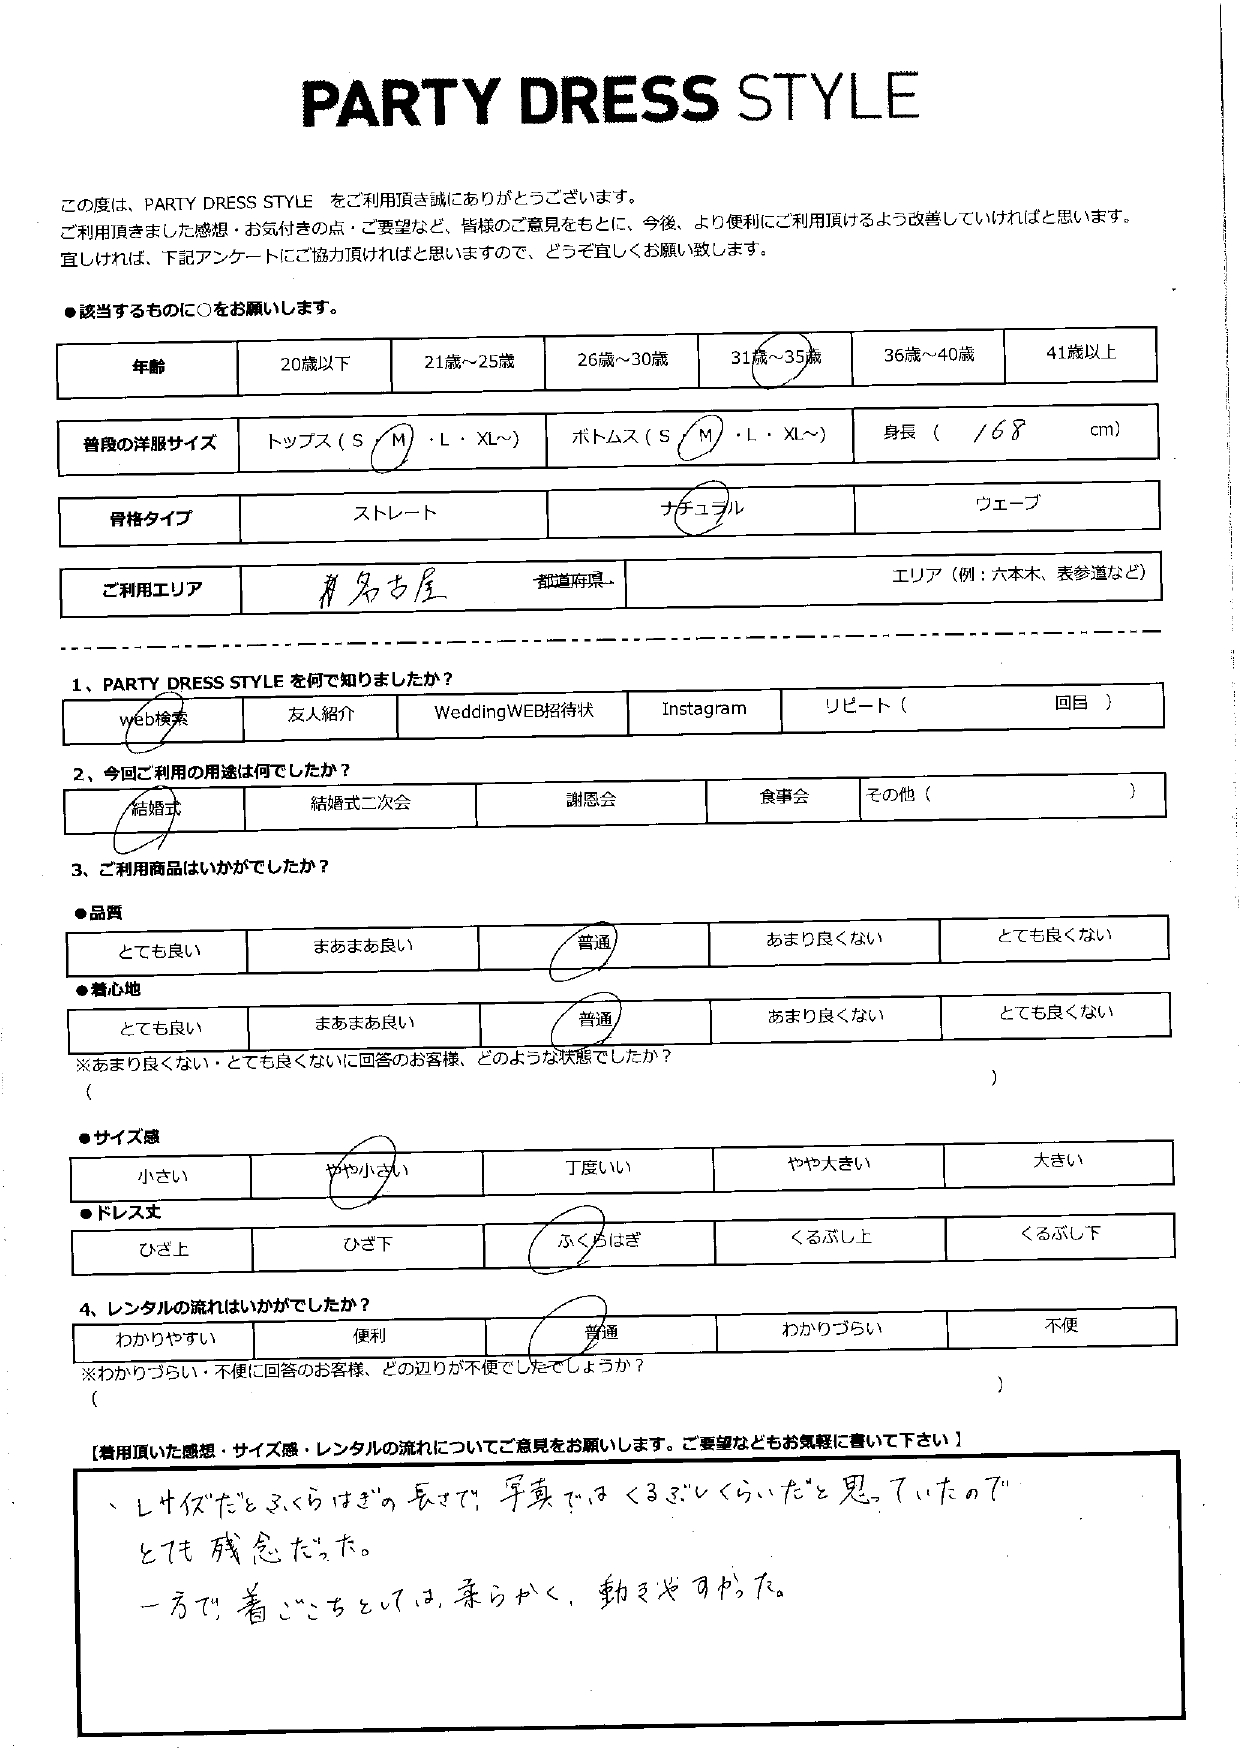 PARTY DRESS STYLE
この度は、PARTY DRESS STYLE をご利用頂き誠にありがとうございます。
ご利用頂きました感想・お気付きの点・ご要望など、皆様のご意見をもとに、今後、より便利にご利用頂けるよう改善していければと思います。
宜しければ、下記アンケートにご協力頂ければと思いますので、どうぞ宜しくお願い致します。
●該当するものに○をお願いします。
年齢 20歳以下 21歳～25歳 26歳～30歳 31歳～35歳 36歳～40歳 41歳以上
普段の洋服サイズ トップス ( S ・ M ・ L ・ XL～) ボトムス ( S ・ M ・ L ・ XL～) 身長 ( 168 cm)
骨格タイプ ストレート ナチュラル ウェーブ
ご利用エリア 名古屋 都道府県 エリア（例：六本木、表参道など）
1、PARTY DRESS STYLE を何で知りましたか？
web検索 友人紹介 WeddingWEB招待状 Instagram リピート ( 回目 )
2、今回ご利用の用途は何でしたか？
結婚式 結婚式二次会 謝恩会 食事会 その他 ( )
3、ご利用商品はいかがでしたか？
●品質
とても良い まあまあ良い 普通 あまり良くない とても良くない
●着心地
とても良い まあまあ良い 普通 あまり良くない とても良くない
※あまり良くない・とても良くないに回答のお客様、どのような状態でしたか？
( )
●サイズ感
小さい やや小さい 丁度いい やや大きい 大きい
●ドレス丈
ひざ上 ひざ下 ふくらはぎ くるぶし上 くるぶし下
4、レンタルの流れはいかがでしたか？
わかりやすい 便利 普通 わかりづらい 不便
※わかりづらい・不便に回答のお客様、どの辺りが不便でしたでしょうか？
( )
【着用頂いた感想・サイズ感・レンタルの流れについてご意見をお願いします。ご要望などもお気軽に書いて下さい】
、Lサイズだとふくらはぎの長さで、写真ではくるぶしくらいだと思っていたので
とても残念だった。
一方で、着ごこちとしては、柔らかく、動きやすかった。